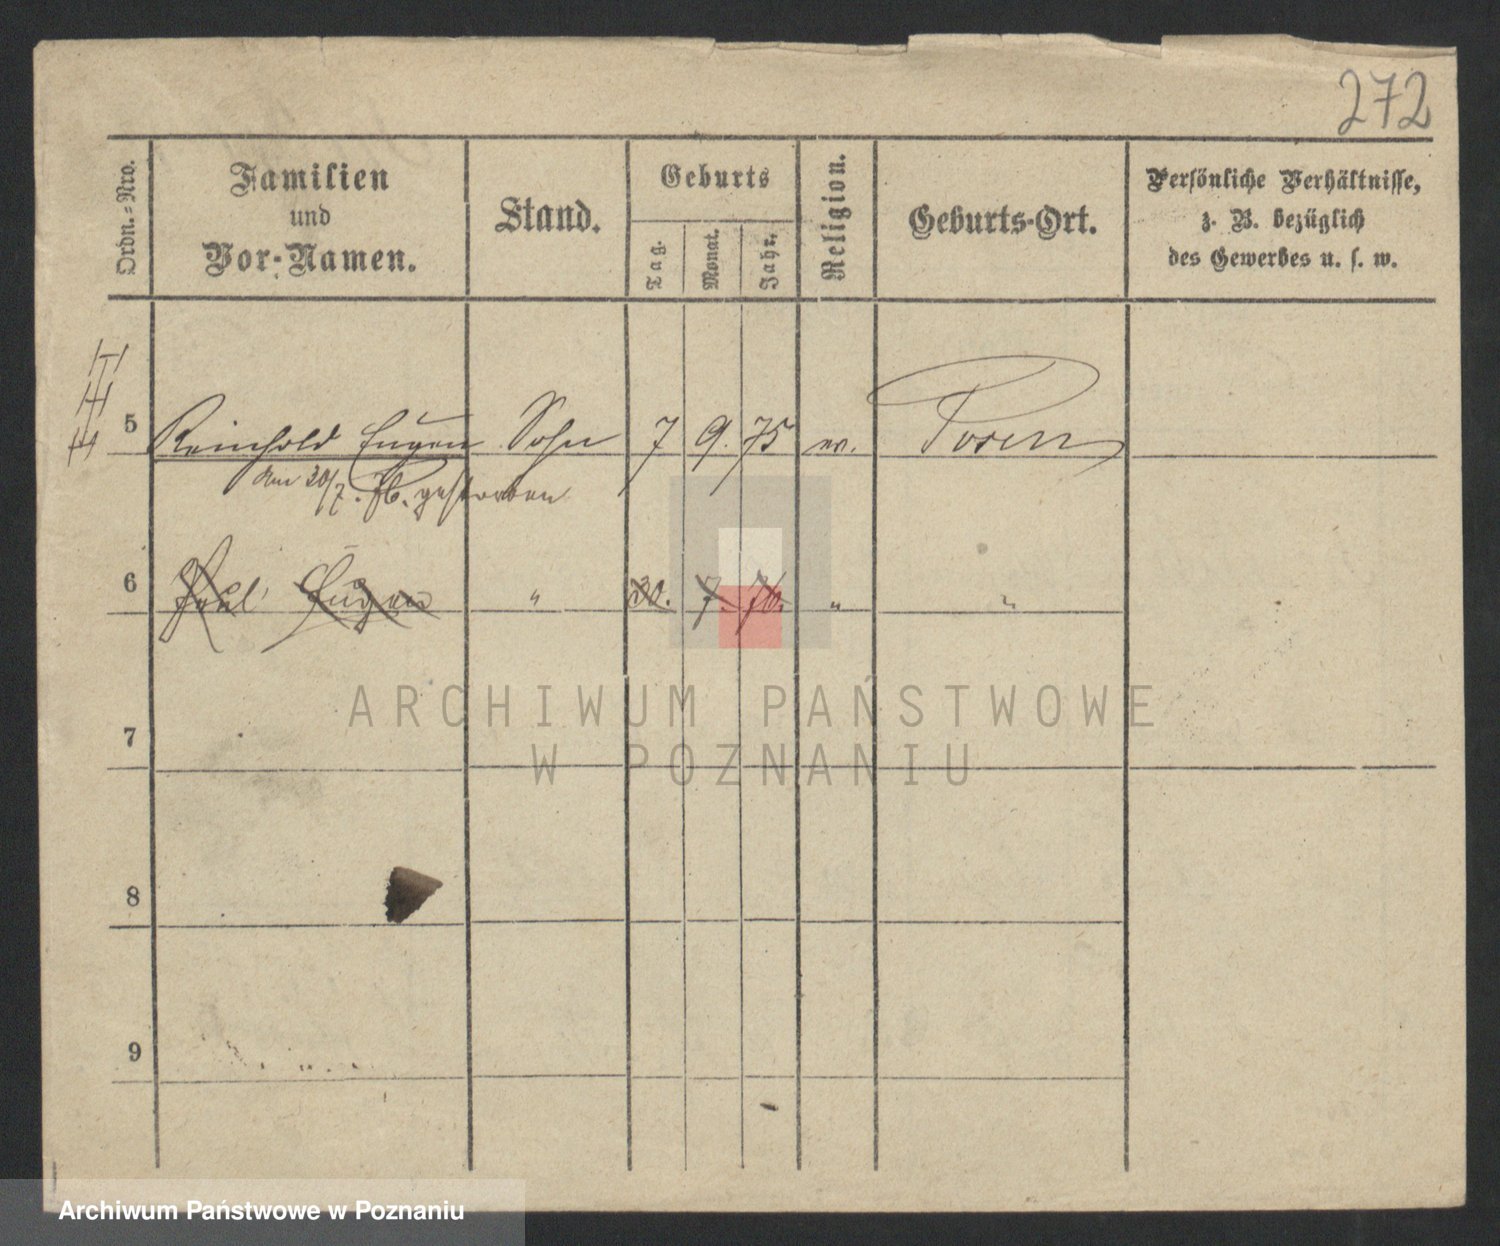 272
Ordn.-Nro.
Familien
und
Vor-Namen.
Stand.
Geburts
Tag.
Monat.
Jahr.
Religion.
Geburts-Ort.
Persönliche Verhältnisse,
z. B. bezüglich
des Gewerbes u. s. w.
5 Reinhold Eugen Sohn 7 9. 75 ev. Posen
Am 30/7. 76. gestorben
6 Paul Eugen " 30. 7. 76. " "
ARCHIWUM PAŃSTWOWE
W POZNANIU
7
8
9
Archiwum Państwowe w Poznaniu